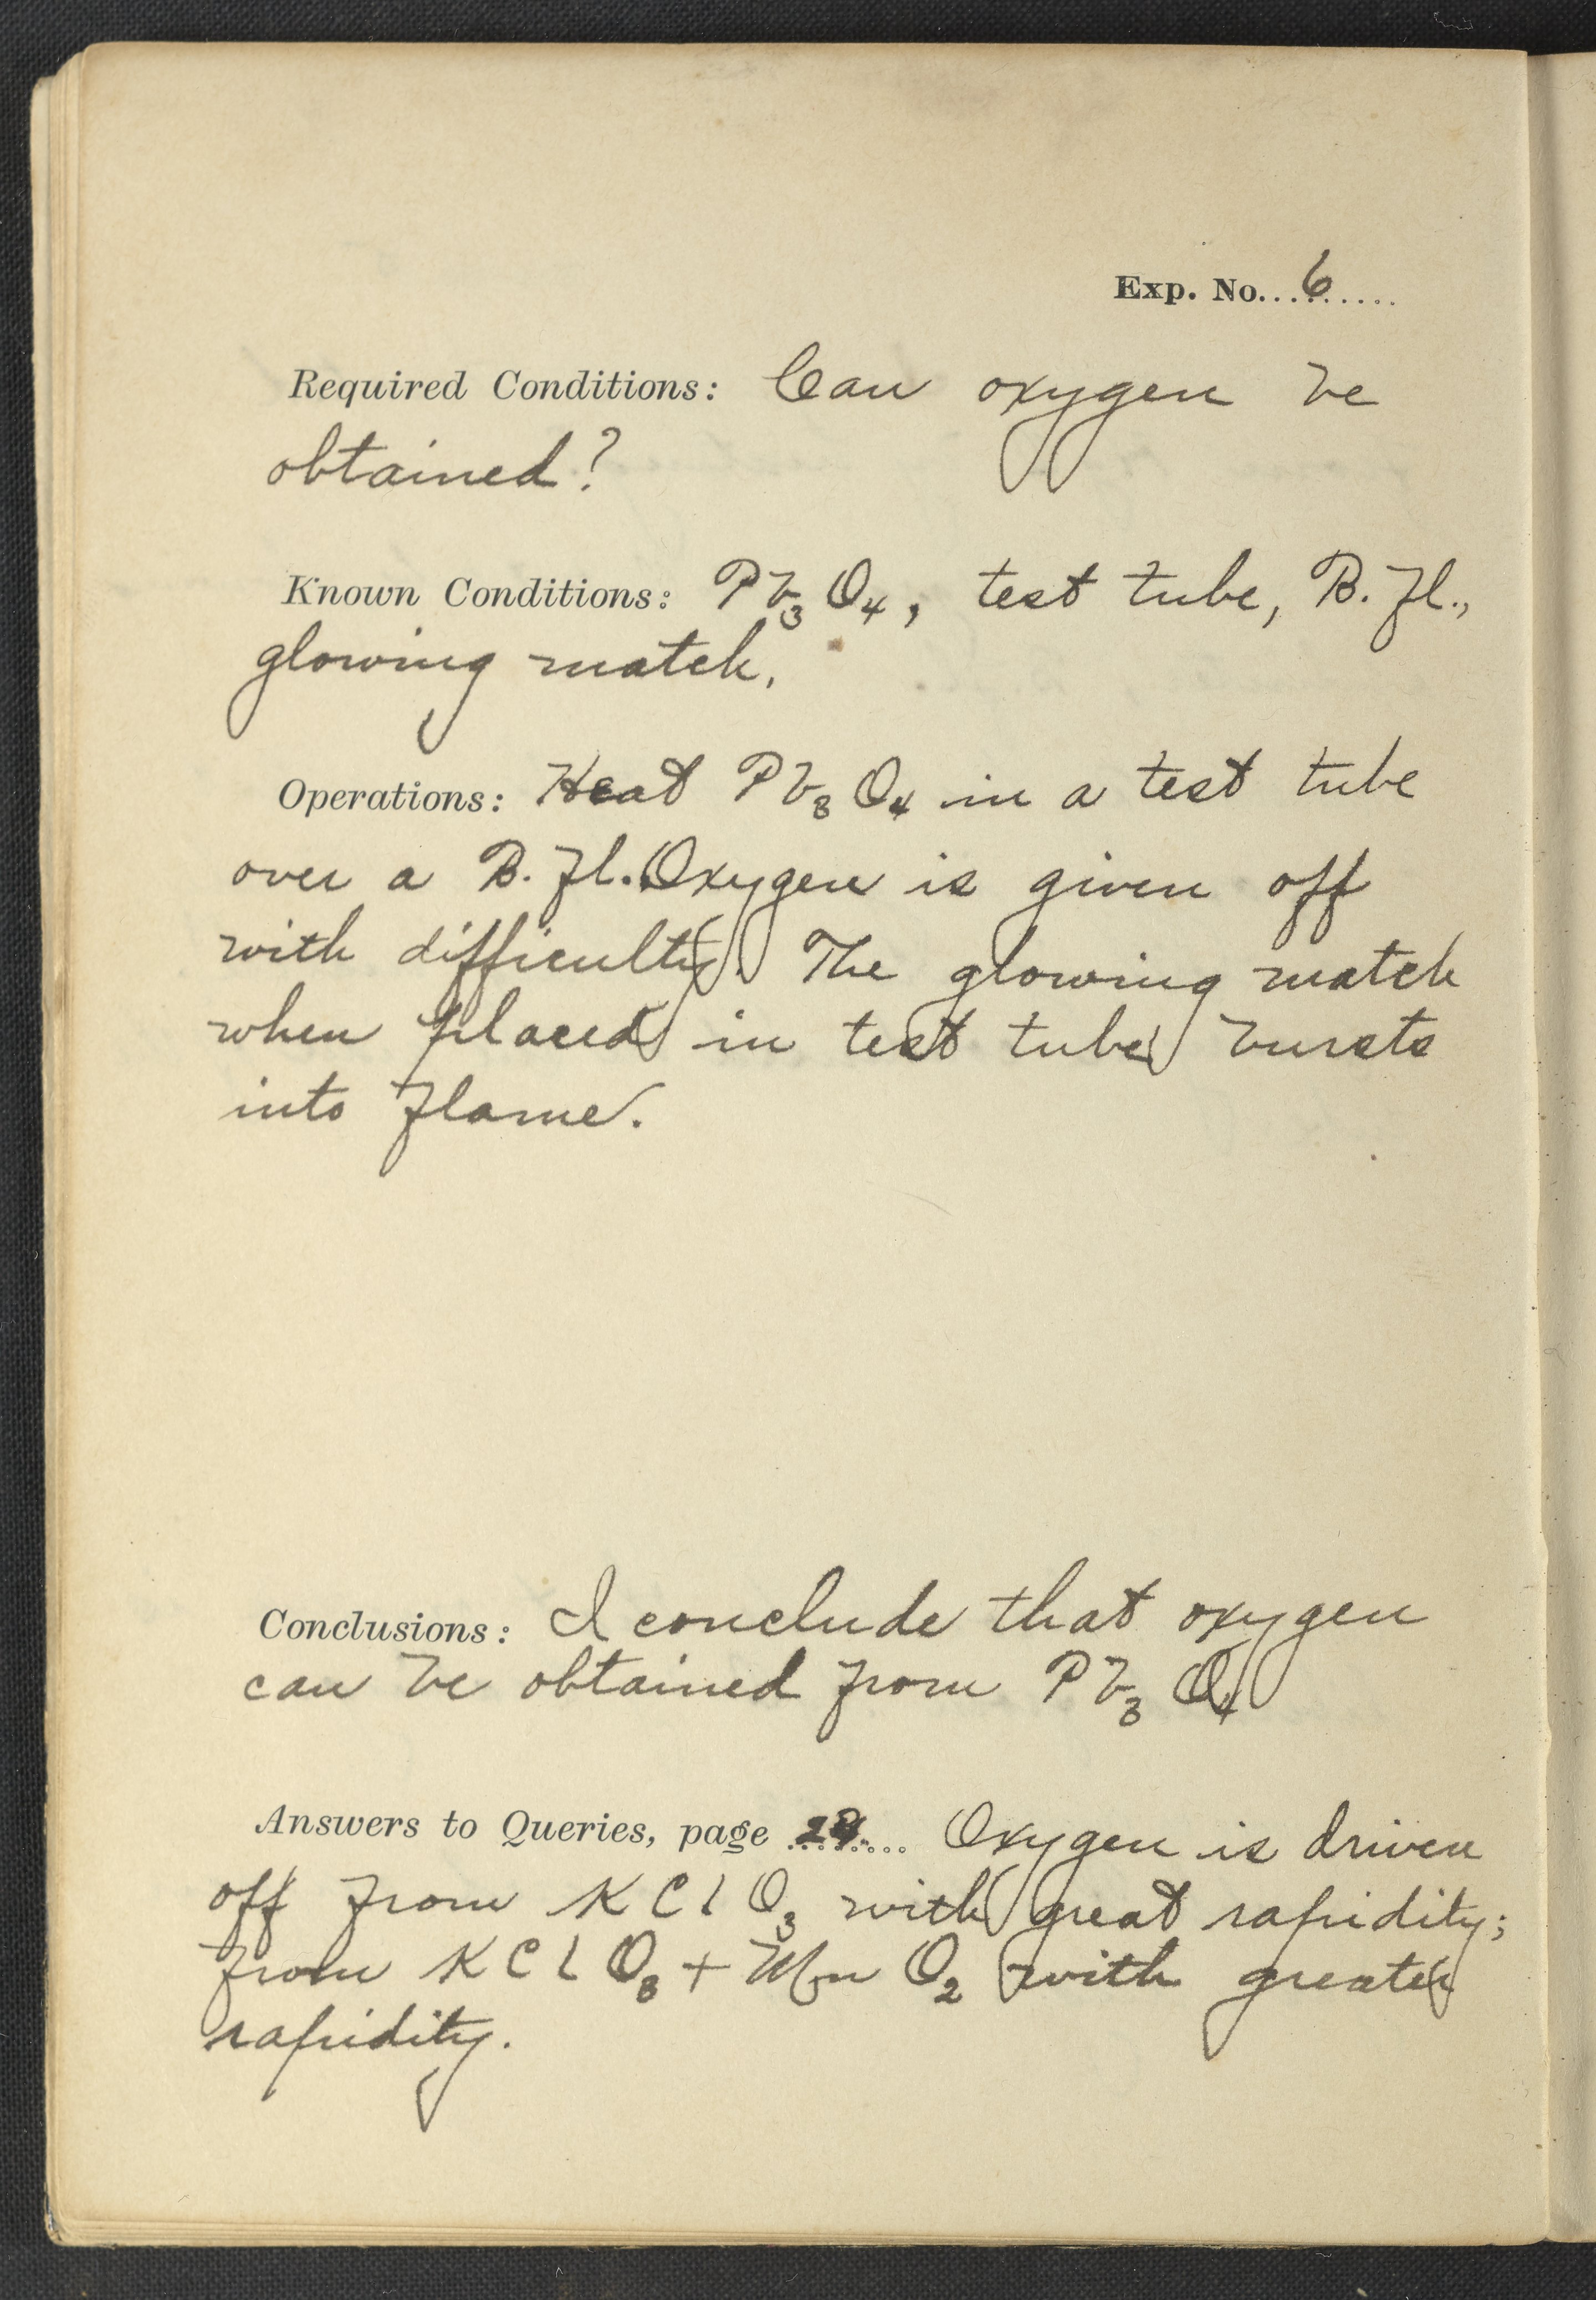 Exp. No....6.....
Required Conditions: Can oxygen be
obtained?
Known Conditions: Pb₃O₄, test tube, B. Fl.,
glowing match.
Operations: Heat Pb₃O₄ in a test tube
over a B. Fl. Oxygen is given off
with difficulty. The glowing match
when placed in test tube bursts
into flame.
Conclusions: I conclude that oxygen
can be obtained from Pb₃O₄
Answers to Queries, page ........ Oxygen is driven
off from KClO₃ with great rapidity;
from KClO₃ + MnO₂ with greater
rapidity.